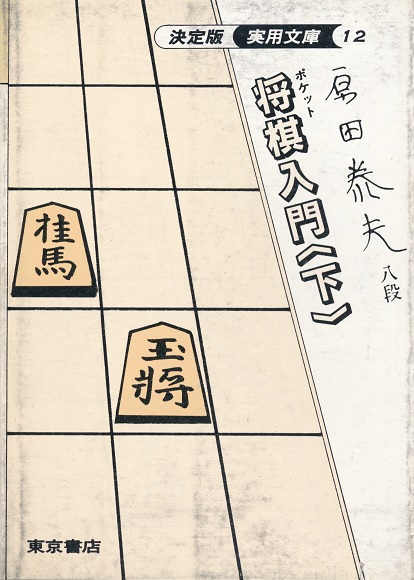 決定版 実用文庫 12
ポケット
将棋入門〈下〉
原田泰夫
八段
桂馬
玉將
東京書店